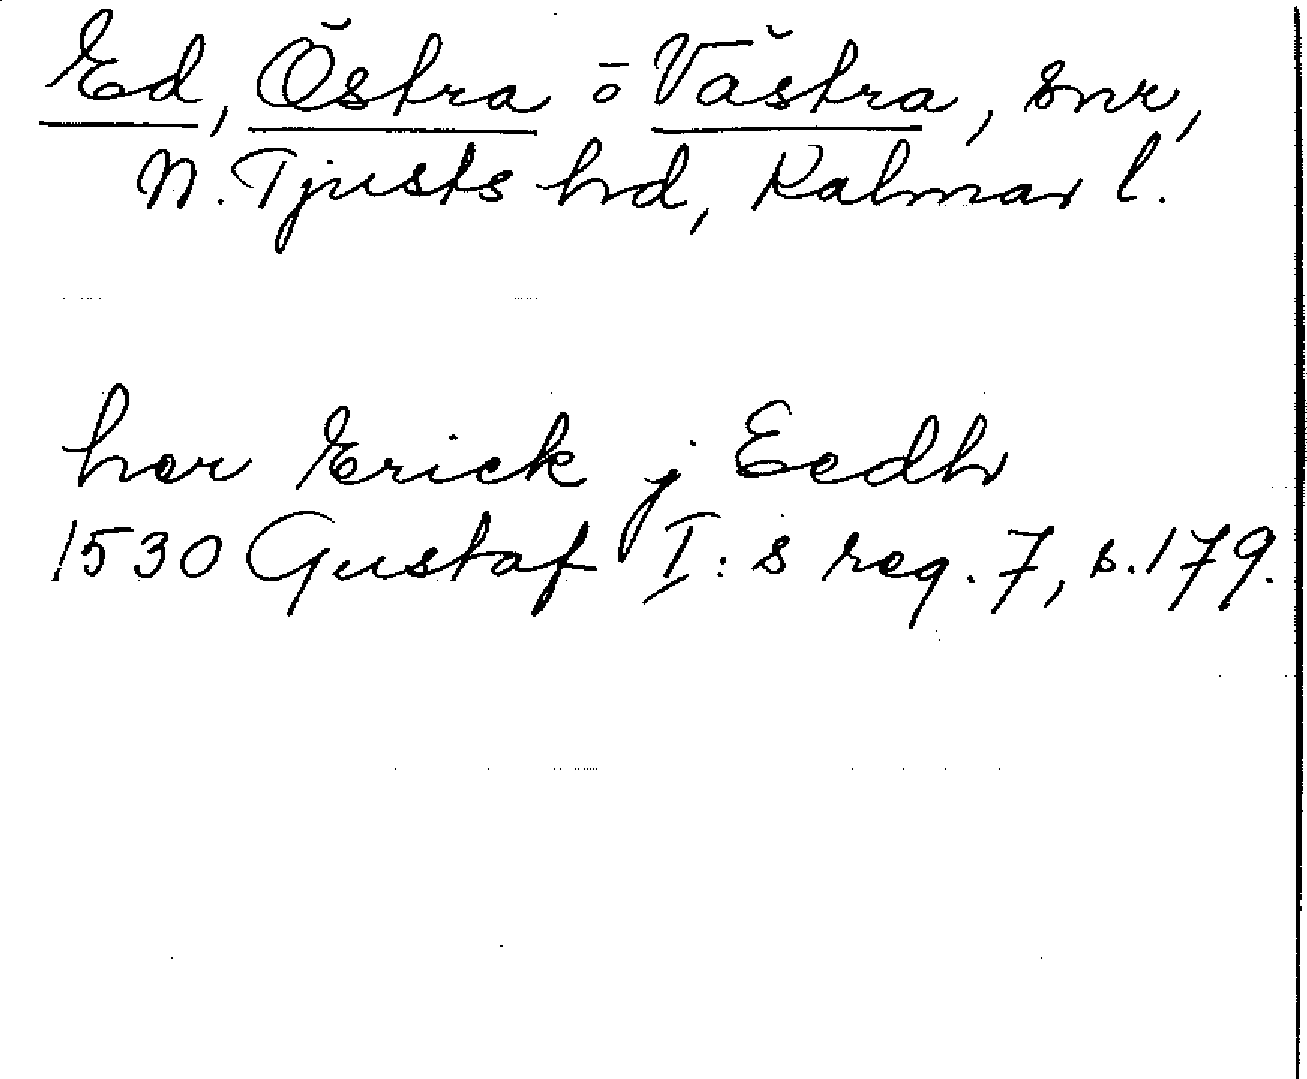 Ed, Östra o Västra, snr,
N. Tjusts hd, Kalmar l.
her Erick j Eedh
1530 Gustaf I:s reg. 7, s. 179.